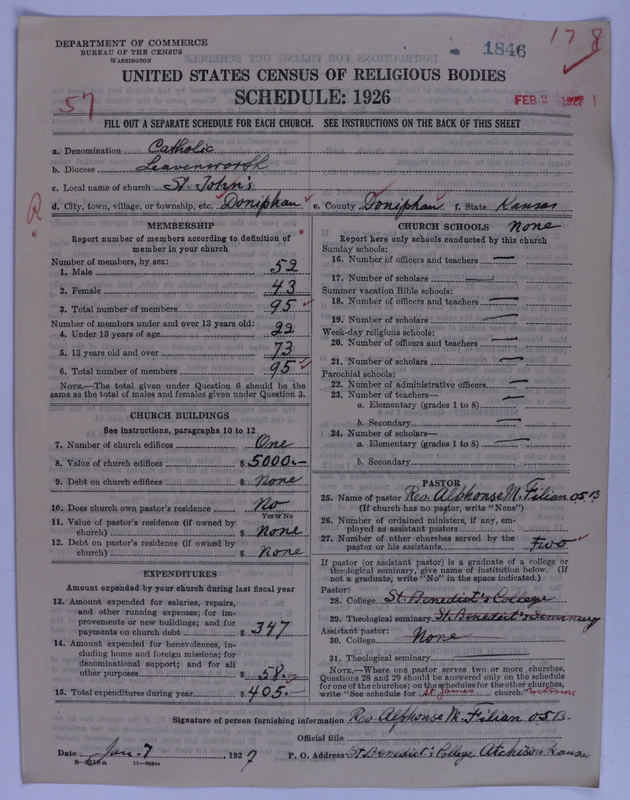 DEPARTMENT OF COMMERCE
BUREAU OF THE CENSUS
WASHINGTON
1846
178
UNITED STATES CENSUS OF RELIGIOUS BODIES
SCHEDULE: 1926
57
FEB 2 1927
FILL OUT A SEPARATE SCHEDULE FOR EACH CHURCH. SEE INSTRUCTIONS ON THE BACK OF THIS SHEET
a. Denomination Catholic
b. Diocese Leavenworth
c. Local name of church St. John's
R
d. City, town, village, or township, etc. Doniphan e. County Doniphan f. State Kansas
MEMBERSHIP
Report number of members according to definition of
member in your church
Number of members, by sex:
1. Male 52
2. Female 43
3. Total number of members 95
Number of members under and over 13 years old:
4. Under 13 years of age 22
5. 13 years old and over 73
6. Total number of members 95
NOTE.—The total given under Question 6 should be
same as the total of males and females given under Question 3.
CHURCH BUILDINGS
See instructions, paragraphs 10 to 12
7. Number of church edifices One
8. Value of church edifices $ 5000.—
9. Debt on church edifices $ None
10. Does church own pastor's residence No
Yes or No
11. Value of pastor's residence (if owned by
church) $ None
12. Debt on pastor's residence (if owned by
church) $ None
EXPENDITURES
Amount expended by your church during last fiscal year
13. Amount expended for salaries, repairs,
and other running expenses; for im-
provements or new buildings; and for
payments on church debt $ 347
14. Amount expended for benevolences, in-
cluding home and foreign missions; for
denominational support; and for all
other purposes $ 58.—
15. Total expenditures during year $ 405.—
CHURCH SCHOOLS None
Report here only schools conducted by this church
Sunday schools:
16. Number of officers and teachers —
17. Number of scholars —
Summer vacation Bible schools:
18. Number of officers and teachers —
19. Number of scholars —
Week-day religious schools:
20. Number of officers and teachers —
21. Number of scholars —
Parochial schools:
22. Number of administrative officers —
23. Number of teachers—
a. Elementary (grades 1 to 8) —
b. Secondary —
24. Number of scholars—
a. Elementary (grades 1 to 8) —
b. Secondary
PASTOR
25. Name of pastor Rev. Alphonse M. Filian O.S.B
(If church has no pastor, write "None")
26. Number of ordained ministers, if any, em-
ployed as assistant pastors
27. Number of other churches served by the
pastor or his assistants Two
If pastor (or assistant pastor) is a graduate of a college or
theological seminary, give name of institution below. (If
not a graduate, write "No" in the space indicated.)
Pastor:
28. College St Benedict's College
29. Theological seminary St. Benedict's Seminary
Assistant pastor:
30. College None
31. Theological seminary
NOTE.—Where one pastor serves two or more churches,
Questions 28 and 29 should be answered only on the schedule
for one of the churches; on the schedules for the other churches,
write "See schedule for St James church."
Signature of person furnishing information Rev. Alphonse M. Filian O.S.B.
Official title
Date Jan. 7 1927 P. O. Address St Benedict's College Atchison Kansas